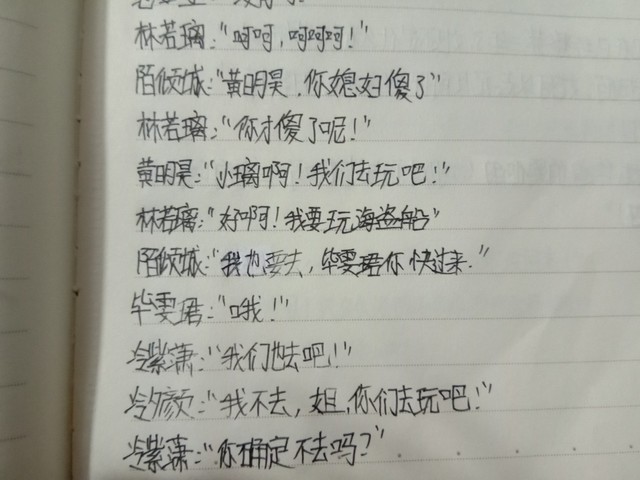 林若璃:“呵呵，呵呵呵！”
陌倾城:“黄明昊，你媳妇傻了”
林若璃:“你才傻了呢！”
黄明昊:“小璃啊！我们去玩吧！”
林若璃:“好啊！我要玩海盗船”
陌倾城:“我也要去，毕雯珺你快过来.”
毕雯珺:“哦！”
冷紫潇:“我们也去吧！”
冷夕颜:“我不去，姐，你们去玩吧！”
冷紫潇:“你确定不去吗？”